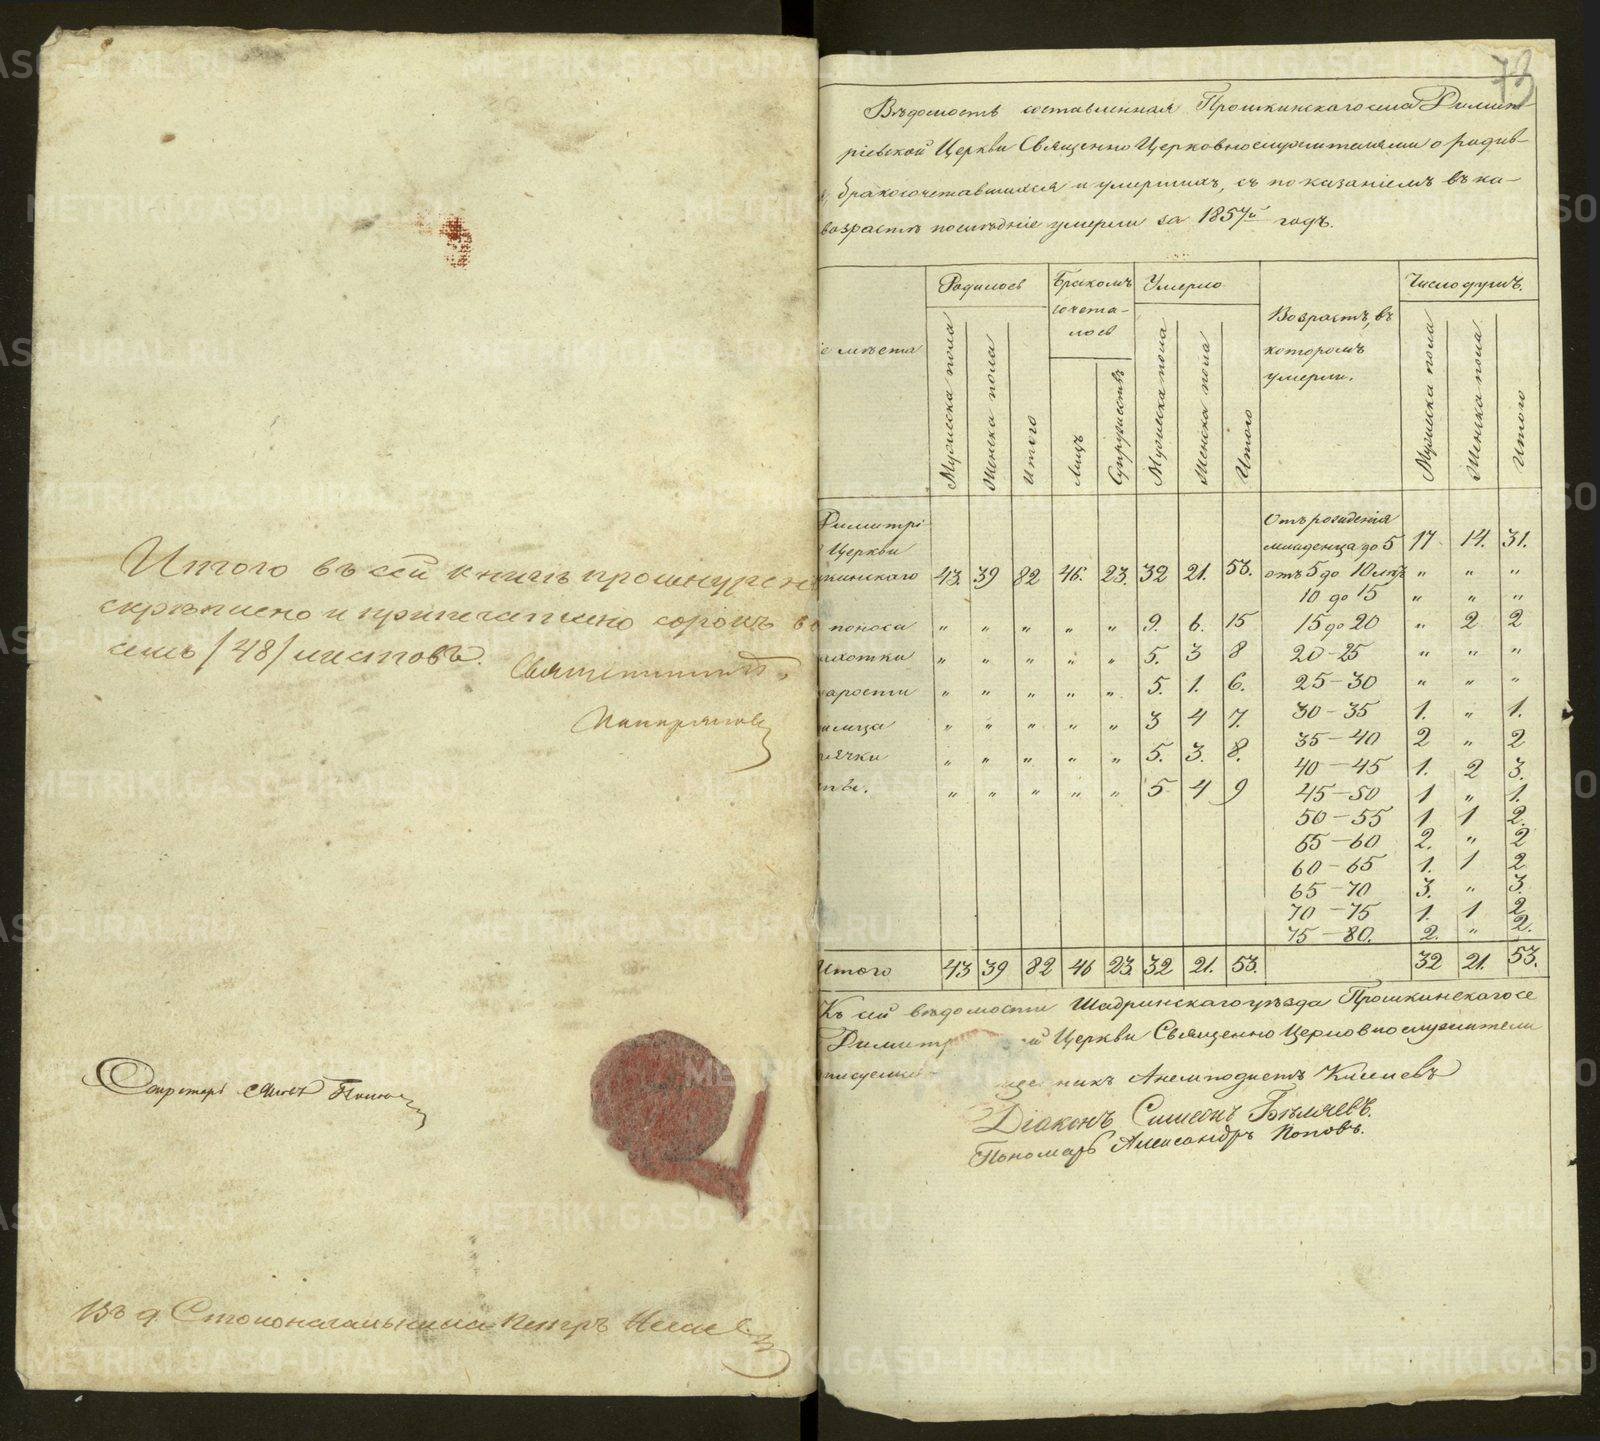 Итого въ сей книгѣ прошнурено
скрѣплено и припечатано сорокъ во
семь /48/ листовъ. Священникъ
Секретарь
Въ д. Столоначальника Петръ
73
Вѣдомость составленная Прошкинскаго села Димит-
ріевской Церкви Священно Церковнослужителями о родив-
бракосочетавшихся и умершихъ, съ показаніемъ въ ка-
возрастѣ послѣдніе умерли за 1857й годъ.
Родилось Бракомъ сочета- лось Умерло Возрастъ, въ которомъ умерли. Число душъ.
е мѣста Мужеска пола Женска пола Итого Лицъ Супружествъ Мужеска пола Женска пола Итого Мужеска пола Женска пола Итого
Димитрі Отъ рожденія
Церкви младенца до 5 17 14. 31.
шкинскаго 43. 39 82 46. 23. 32 21. 53. отъ 5 до 10 лѣтъ " " "
10 до 15 " " "
поноса " " " " " 9. 6. 15 15 до 20 " 2 2
ахотки " " " " " 5. 3 8 20-25 " " "
тарости " " " " " 5. 1. 6. 25-30 " " "
" " " " " 3 4 7. 30-35 1. " 1.
35-40 2 " 2
рячки " " " " " 5. 3. 8. 40-45 1. 2 3.
" " " " " 5 4 9 45-50 1 " 1.
50-55 1 1 2.
55-60 2. " 2
60-65 1. 1 2
65-70 3. " 3.
70-75 1. 1 2
75-80. 2. " 2.
Итого 43 39 82 46 23. 32 21. 53. 32 21. 53.
Къ сей вѣдомости Шадринскаго уѣзда Прошкинскаго се
Димитр ой Церкви Священно Церковнослужители
щенникъ Анемподистъ Киселевъ
Діаконъ Симеонъ Бѣляевъ.
Пономарь Александръ Поповъ.
METRIKI.GASO-URAL.RU